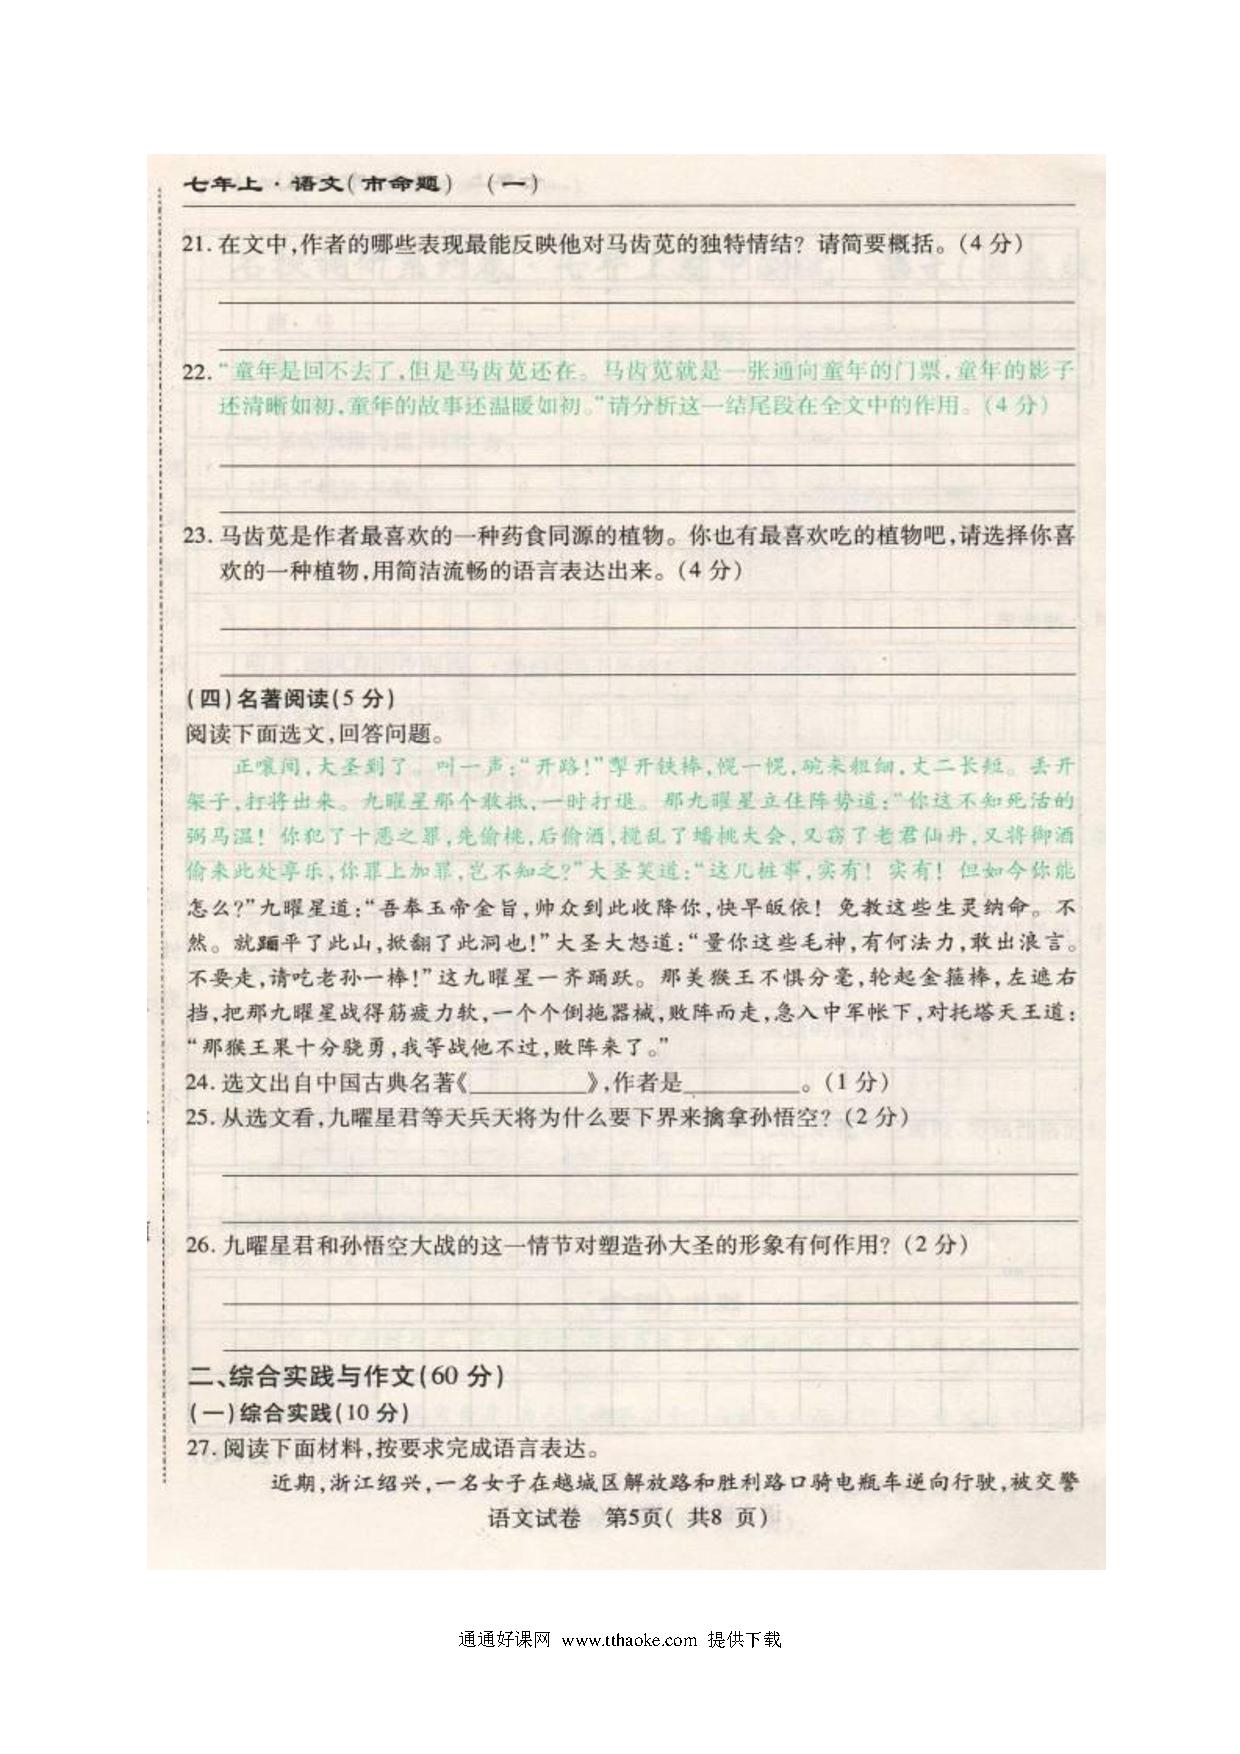 七年上·语文(市命题) (一)
21. 在文中,作者的哪些表现最能反映他对马齿苋的独特情结? 请简要概括。(4 分)
22. “童年是回不去了,但是马齿苋还在。马齿苋就是一张通向童年的门票,童年的影子
还清晰如初,童年的故事还温暖如初。”请分析这一结尾段在全文中的作用。(4 分)
23. 马齿苋是作者最喜欢的一种药食同源的植物。你也有最喜欢吃的植物吧,请选择你喜
欢的一种植物,用简洁流畅的语言表达出来。(4 分)
(四)名著阅读(5 分)
阅读下面选文,回答问题。
正嚷间,大圣到了。叫一声:“开路!”掣开铁棒,幌一幌,碗来粗细,丈二长短。丢开
架子,打将出来。九曜星那个敢抵,一时打退。那九曜星立住阵势道:“你这不知死活的
弼马温! 你犯了十恶之罪,先偷桃,后偷酒,搅乱了蟠桃大会,又窃了老君仙丹,又将御酒
偷来此处享乐,你罪上加罪,岂不知之?”大圣笑道:“这几桩事,实有! 实有! 但如今你能
怎么?”九曜星道:“吾奉玉帝金旨,帅众到此收降你,快早皈依! 免教这些生灵纳命。不
然。就蹦平了此山,掀翻了此洞也!”大圣大怒道:“量你这些毛神,有何法力,敢出浪言。
不要走,请吃老孙一棒!”这九曜星一齐踊跃。那美猴王不惧分毫,轮起金箍棒,左遮右
挡,把那九曜星战得筋疲力软,一个个倒拖器械,败阵而走,急入中军帐下,对托塔天王道:
“那猴王果十分骁勇,我等战他不过,败阵来了。”
24. 选文出自中国古典名著《__________》,作者是__________。(1 分)
25. 从选文看,九曜星君等天兵天将为什么要下界来擒拿孙悟空? (2 分)
26. 九曜星君和孙悟空大战的这一情节对塑造孙大圣的形象有何作用? (2 分)
二、综合实践与作文(60 分)
(一)综合实践(10 分)
27. 阅读下面材料,按要求完成语言表达。
近期,浙江绍兴,一名女子在越城区解放路和胜利路口骑电瓶车逆向行驶,被交警
语文试卷 第5页( 共8 页)
通通好课网 www.tthaoke.com 提供下载